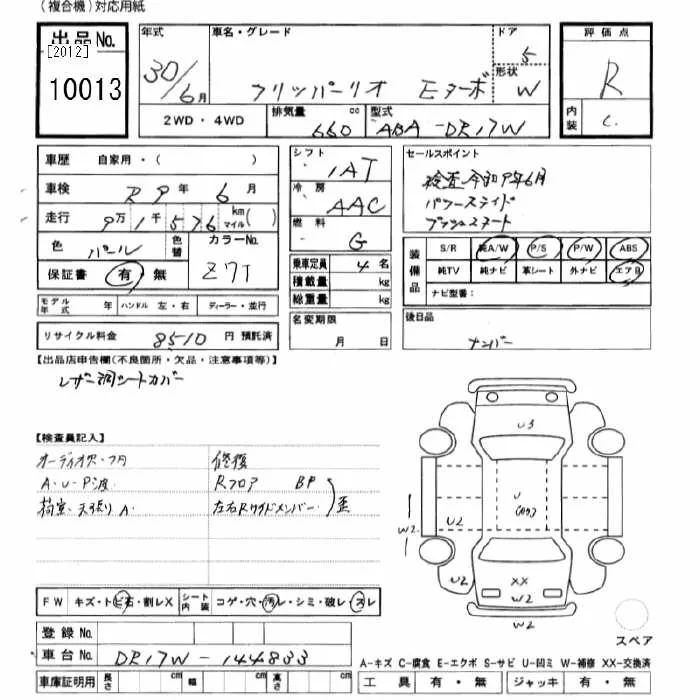 (複合機)対応用紙
出品No. [2012] 10013
年式 30/6月
車名・グレード フリッパーリオ Eターボ
ドア 5
形状 W
評価点 R
内装 C
2WD・4WD
排気量 660 cc
型式 ABA-DR17W
車歴 自家用・( )
車検 R9年 6月
走行 9万1千576 km マイル( )
色 パール 色替
カラーNo. Z7T
保証書 有・無
モデル年式 年 ハンドル 左・右 ディーラー・並行
リサイクル料金 8510 円 預託済
シフト IAT
冷房 AAC
燃料 G
乗車定員 4名
積載量 kg
総重量 kg
名変期限 月 日
セールスポイント
検査令和9年6月
パワースライド
プッシュスタート
装備品 S/R 純A/W P/S P/W ABS
純TV 純ナビ 革シート 外ナビ エアB
ナビ型番:
後日品
ナンバー
【出品店申告欄(不良箇所・欠品・注意事項等)】
レザー調シートカバー
【検査員記入】
オーディオ欠・フタ 修復
A・U・P波 Rフロア BP
荷室・天張りA 左右Rサイドメンバー 歪
U3
U
W2 U2
U2 XX
W2
W2
スペア
FW キズ・トビ石・割レX シート内装 コゲ・穴・汚レ・シミ・破レ・スレ
登録No.
車台No. DR17W-144833
車庫証明用 長さ cm 幅 cm 高さ cm
A-キズ C-腐食 E-エクボ S-サビ U-凹ミ W-補修 XX-交換済
工具 有・無 ジャッキ 有・無